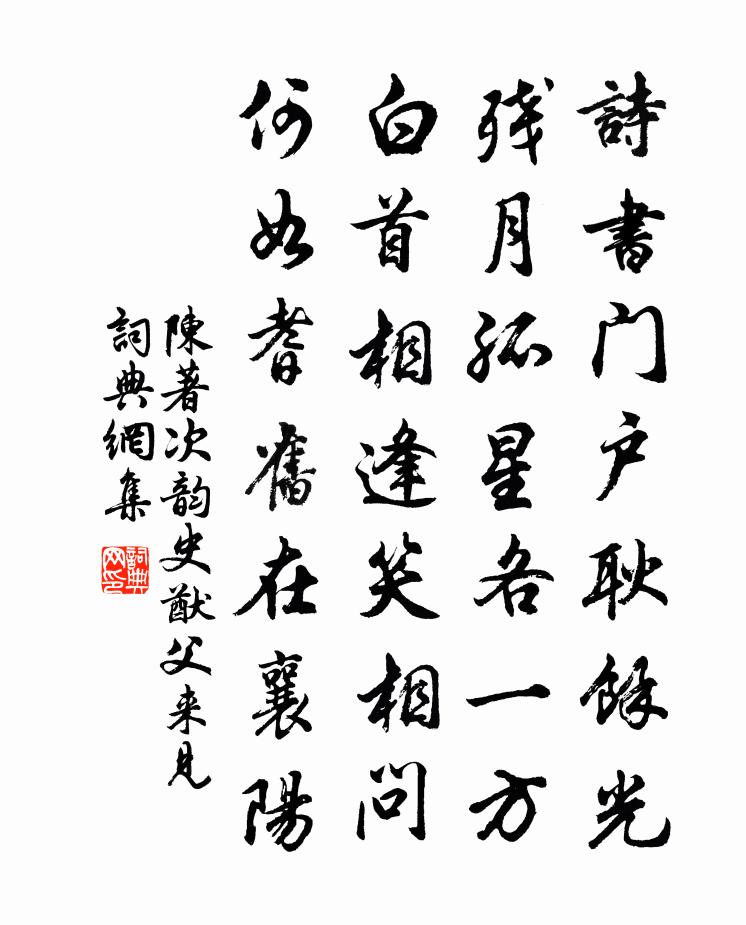 詩書门户耿餘光
残月孤星各一方
白首相逢笑相问
何如耆舊在襄陽
陳著次韵史猷父来見
詞典網集
詞典网印